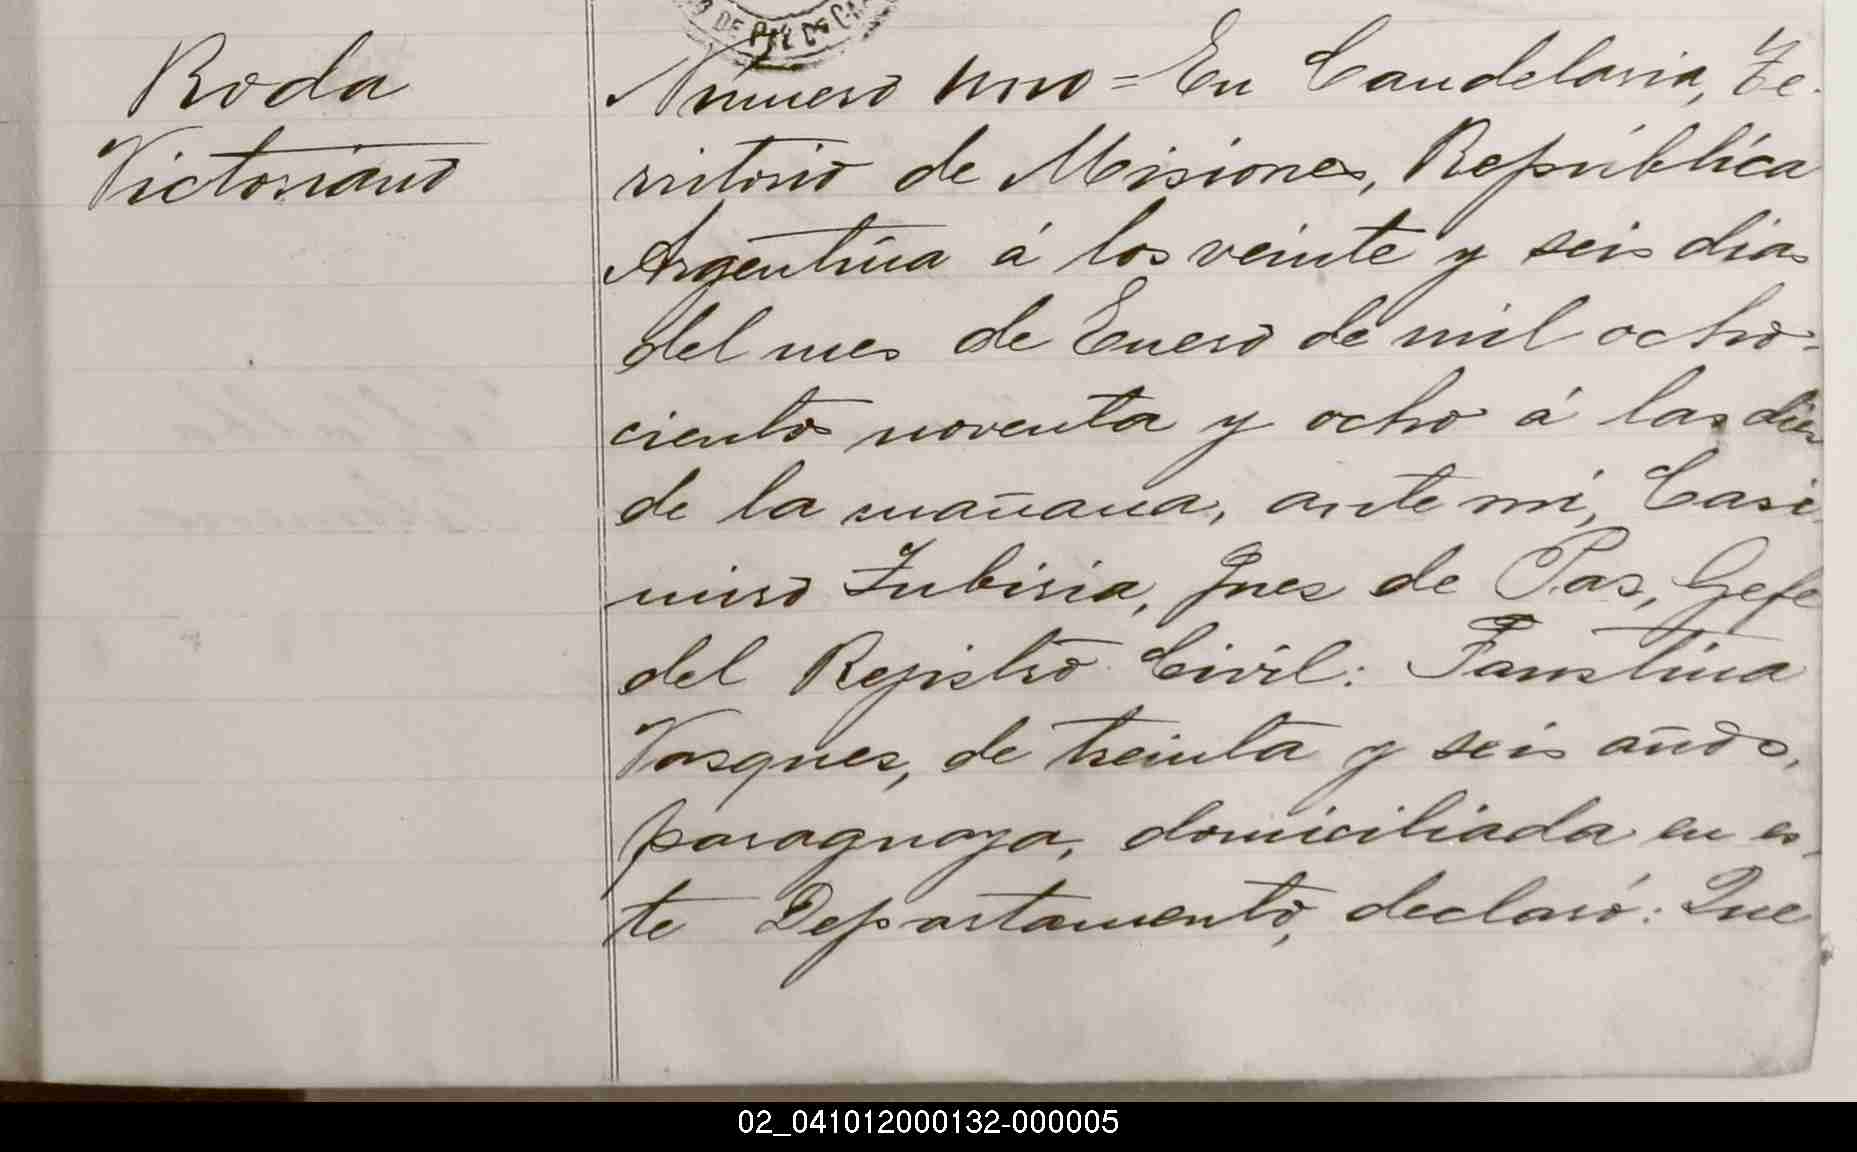 DE PAZ DE CA
Roda
Victoriano
Número uno = En Candelaria, Te-
rritorio de Misiones, República
Argentina á los veinte y seis dias
del mes de Enero de mil ocho-
cientos noventa y ocho á las diez
de la mañana, ante mi, Casi
miro Zubiria, Jues de Pas, Gefe
del Registro Civil: Faustina
Vasques, de treinta y seis años,
paraguaya, domiciliada en es-
te Departamento, declaró: Que
02_041012000132-000005